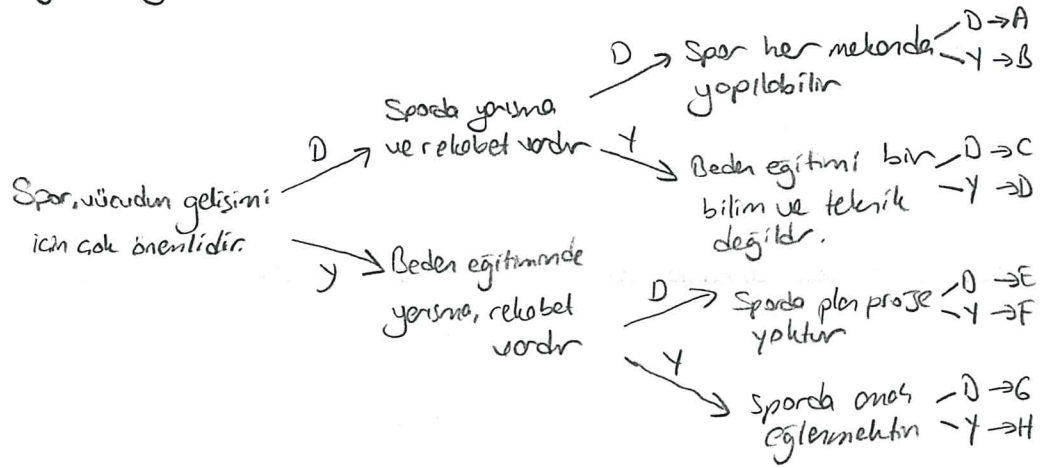 Spor, vücudun gelişimi
için çok önemlidir.
D
Y
Sporda yarışma
ve rekabet vardır
D
Y
Spor her mekanda
yapılabilir
D → A
Y → B
Beden eğitimi bir
bilim ve teknik
değildr.
D → C
Y → D
Beden eğitiminde
yarışma, rekabet
vardır
D
Y
Sporda plan proje
yoktur
D → E
Y → F
Sporda amaç
eğlenmektir
D → G
Y → H